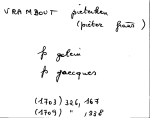 VRAMBOUT pieterken
(pieter frans)
p gelein
p jacques
(1703) 326, 167
(1709) " , 238